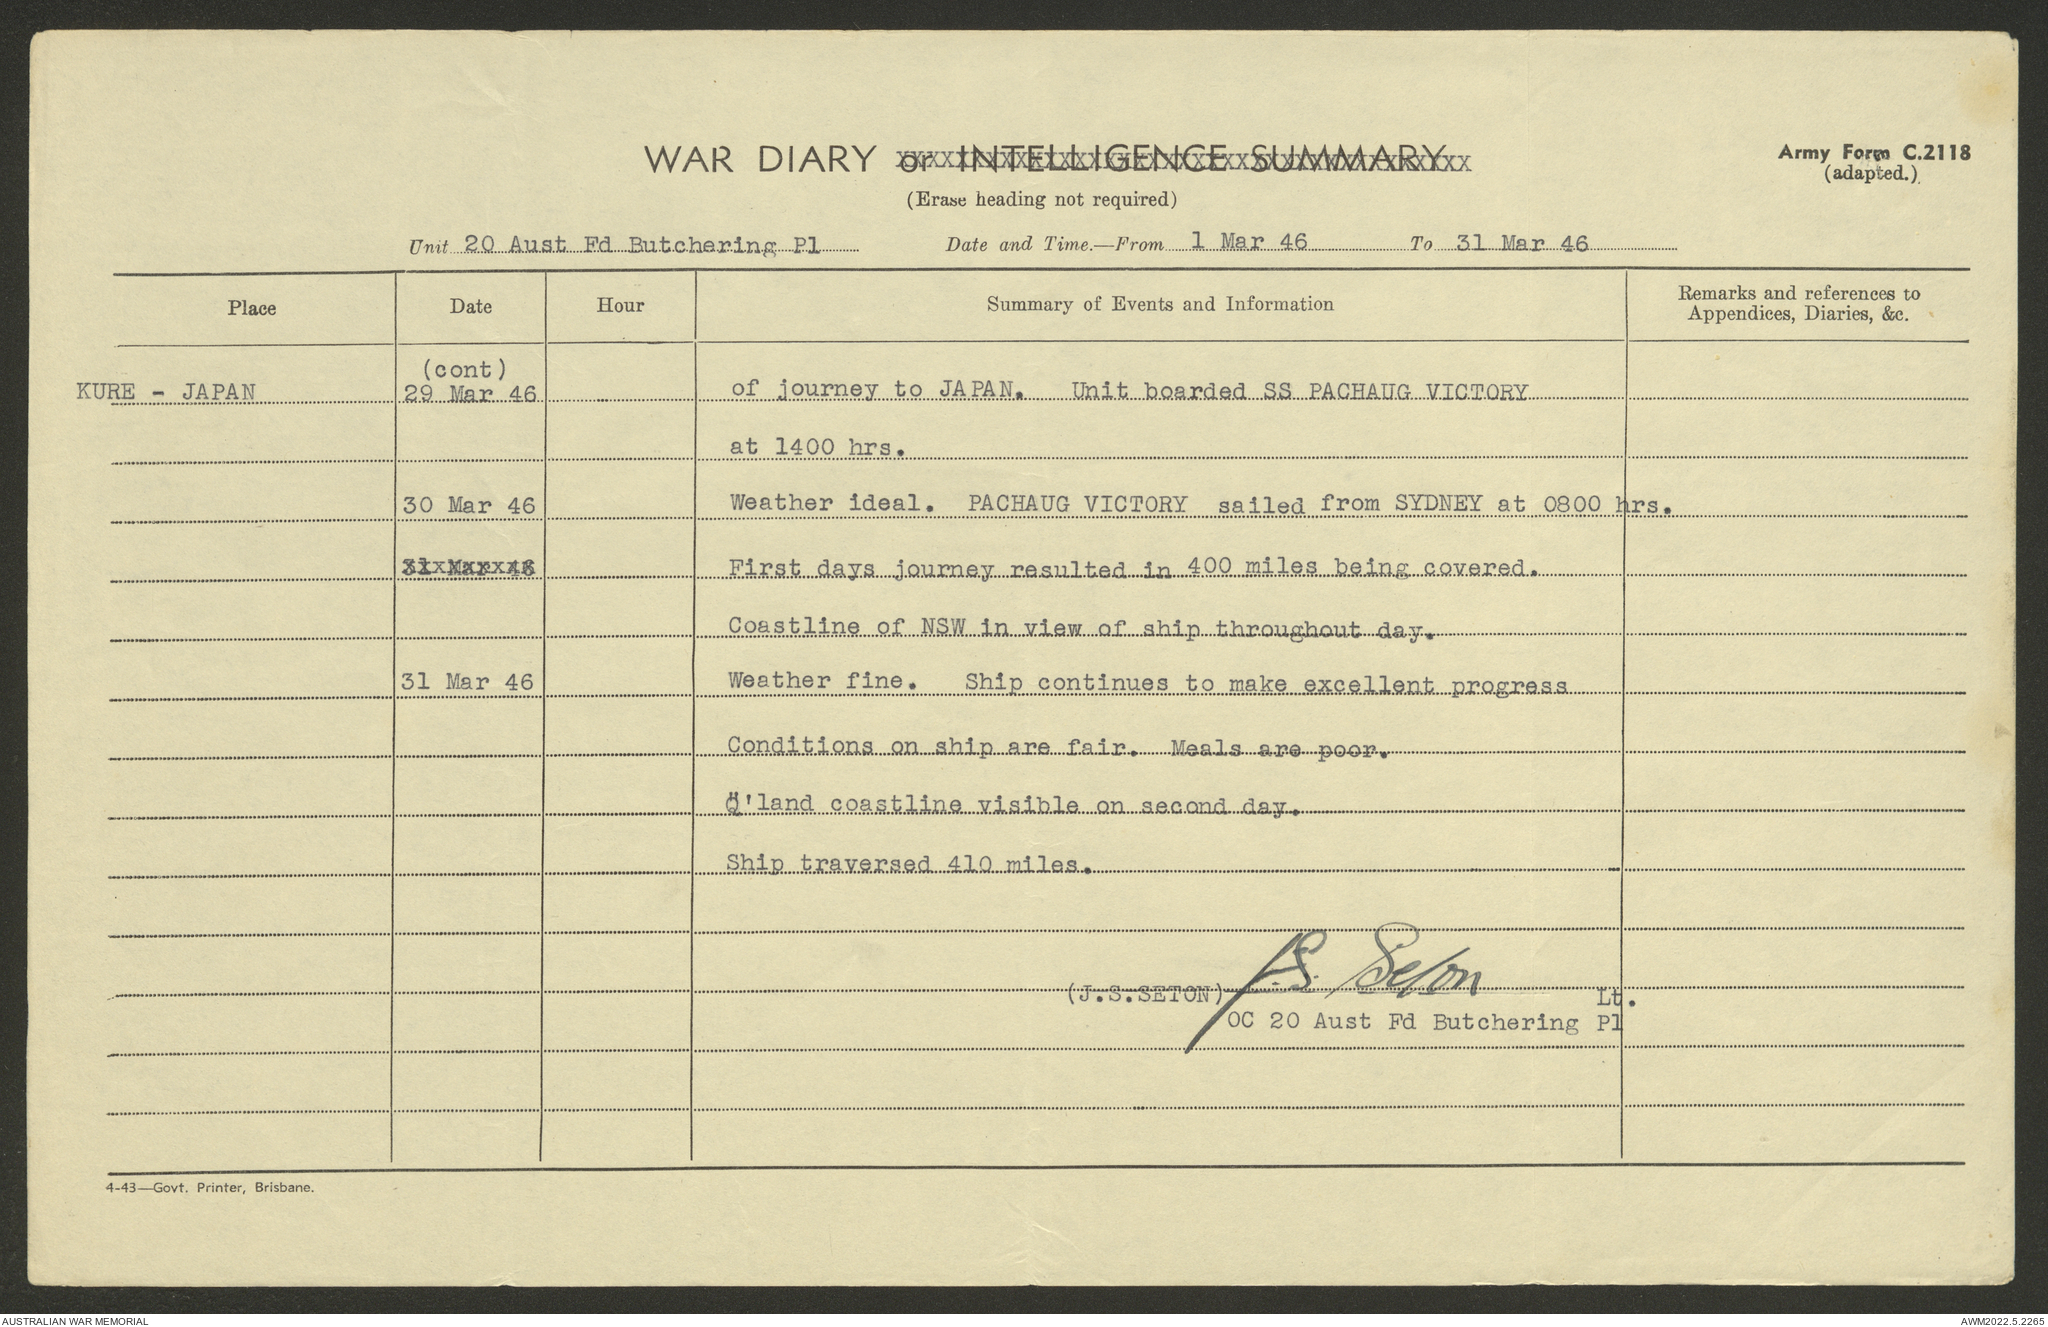 WAR DIARY or INTELLIGENCE SUMMARY
(Erase heading not required)
Army Form C.2118
(adapted.)
Unit 20 Aust Fd Butchering Pl Date and Time.—From 1 Mar 46 To 31 Mar 46
Place Date Hour Summary of Events and Information Remarks and references to
Appendices, Diaries, &c.
(cont)
KURE - JAPAN 29 Mar 46 of journey to JAPAN. Unit boarded SS PACHAUG VICTORY
at 1400 hrs.
30 Mar 46 Weather ideal. PACHAUG VICTORY sailed from SYDNEY at 0800 hrs.
31 Mar 46 First days journey resulted in 400 miles being covered.
Coastline of NSW in view of ship throughout day.
31 Mar 46 Weather fine. Ship continues to make excellent progress
Conditions on ship are fair. Meals are poor.
Q'land coastline visible on second day.
Ship traversed 410 miles.
(J.S.SETON) J.S. Seton Lt.
OC 20 Aust Fd Butchering Pl
4-43—Govt. Printer, Brisbane.
AUSTRALIAN WAR MEMORIAL AWM2022.5.2265